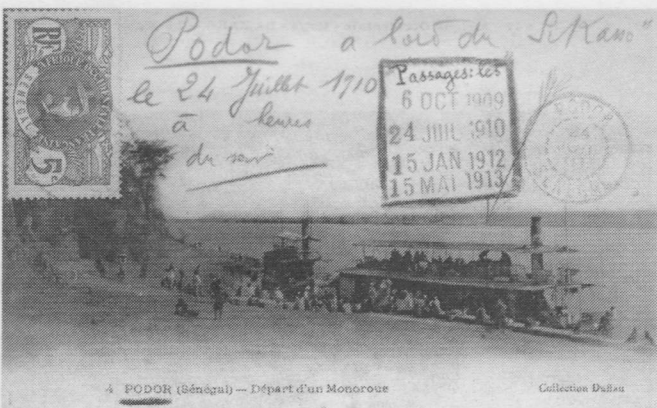 Podor a bord du "Sikasso"
le 24 Juillet 1910
à heures
du soir
Passages: les
6 OCT 1909
24 JUIL 1910
15 JAN 1912
15 MAI 1913
PODOR
24
SÉNÉGAL
RF
AFRIQUE OCCIDENTALE
5c
4 PODOR (Sénégal) — Départ d'un Monoroue
Collection Duffau